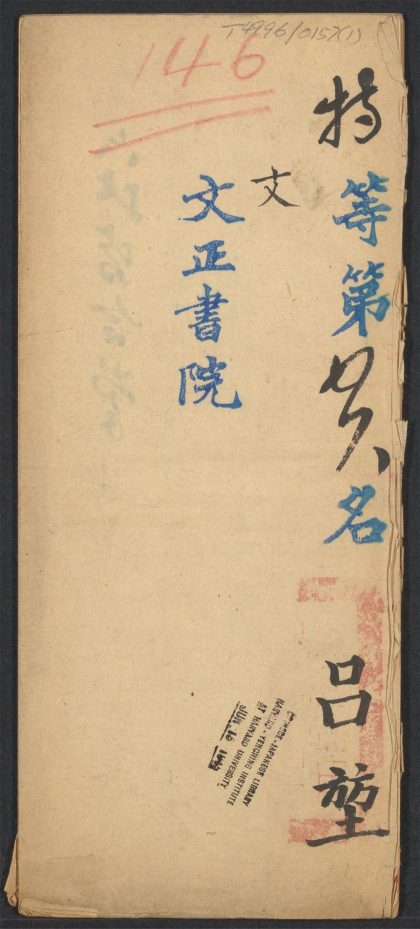 T4996/0157(1)
146
特等第
名
呂堃
文
文正書院
CHINESE-JAPANESE LIBRARY
HARVARD-YENCHING INSTITUTE
AT HARVARD UNIVERSITY
JUN 16